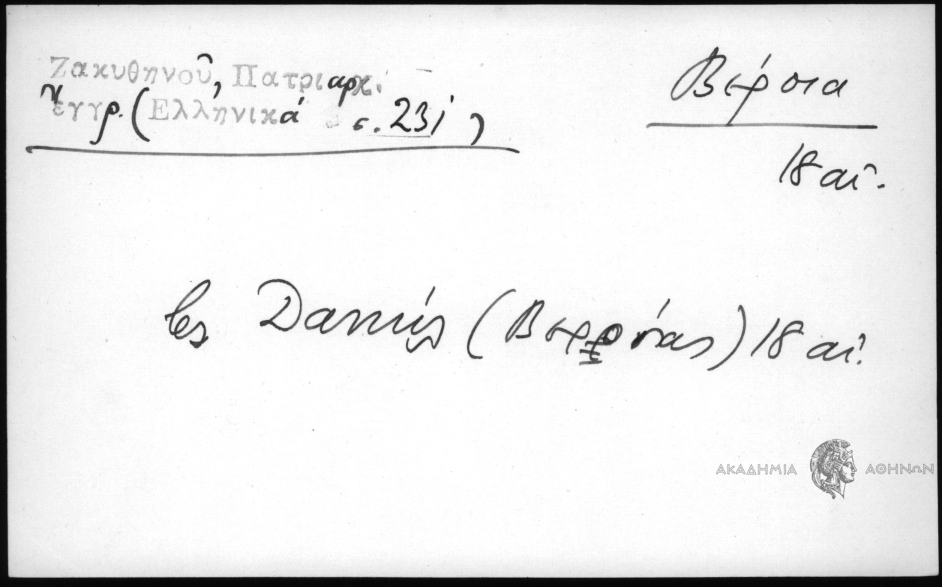 Ζακυθηνοῦ, Πατριαρχ.
ἔγγρ. (Ἑλληνικά σ. 231)
Βέρροια
18 αἰ.
Δανιήλ (Βερροίας) 18 αἰ.
ΑΚΑΔΗΜΙΑ ΑΘΗΝΩΝ